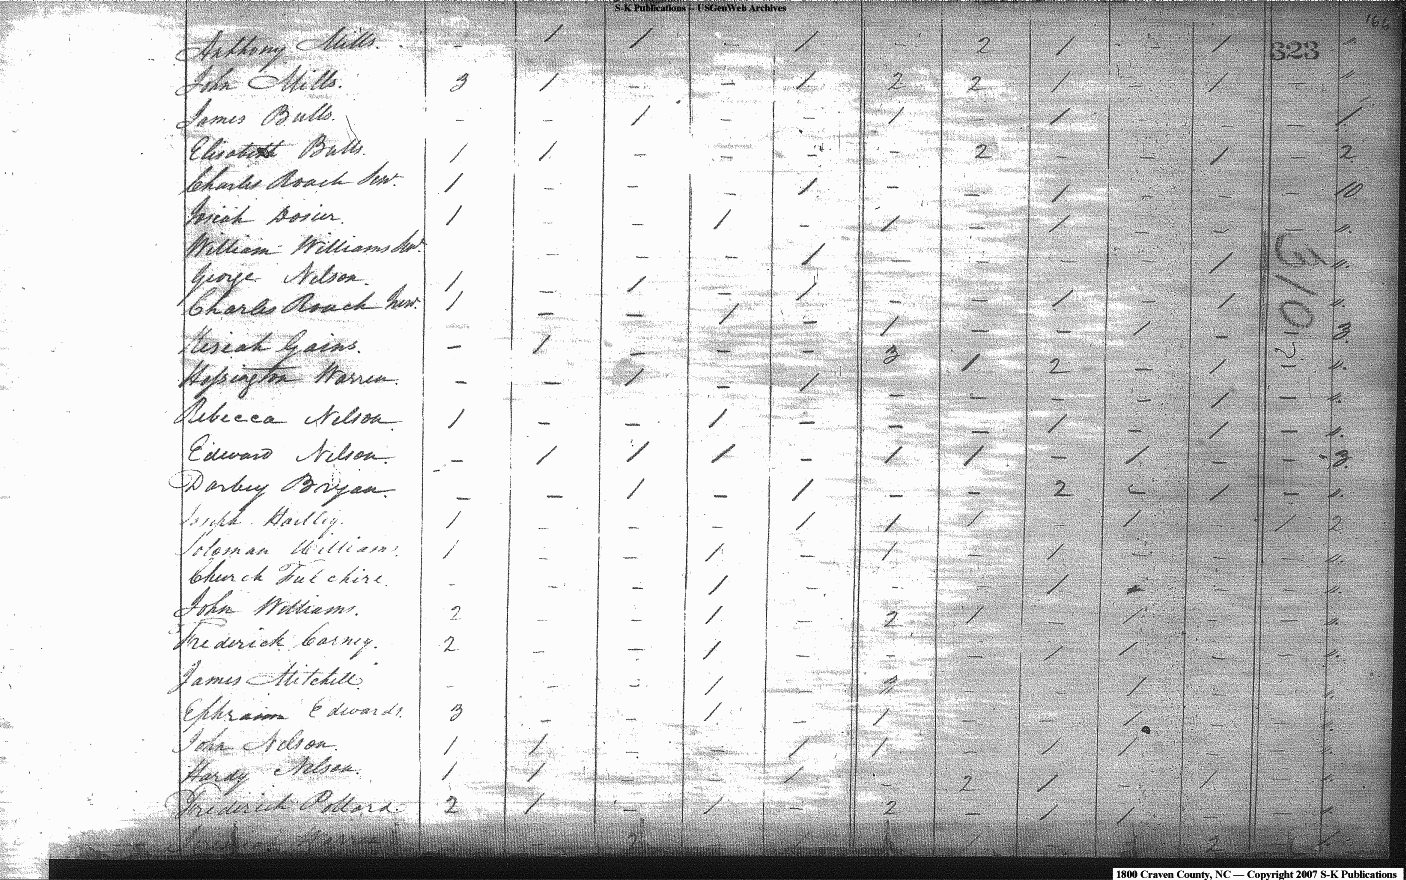 S-K Publications – USGenWeb Archives
166
323
Anthony Mills. - / / - / - 2 / - / - "
John Mills. 3 / - - / 2 2 / - / - "
James Butts. - - / - - / - / - - - 1
Elisabeth Butts. / / - - - - 2 - - / - 2
Charles Roach Senr. / - - - / - - / - - - 10
Josiah Dosier. / - - / - / - / - - - "
William Williams Senr. - - - / - - - - / - "
George Nelson. / - / - / - - / - / - "
Charles Roach Junr. / - - / - / - - / - - 3
Kesiah Gains. - / - - - 3 / 2 - / - "
Hessington Warren. - - / - / - - - - / - "
Rebecca Nelson. / - - / - - - / - / - "
Edward Nelson. - / / / - / / - / - - 3
Darbey Bryan. - - / - / - - 2 - / - "
Joseph Hartley. / - - - / / / - / - / 2
Soloman Williams. / - - / - / - / - - - "
Church Fulchire. - - - / - - - / - - - "
John Williams. 2 - - / - 2 / - / - - "
Frederick Carney. 2 - - / - - - / / - - "
James Mitchell. - - - / - - - / - - "
Ephraim Edwards. 3 - - / - / - - / - - "
John Nelson. / / - - / / - / / - - "
Hardy Nelson. / / - - / - 2 / - / - "
Frederick Pollard. 2 / - / - 2 - / / - - "
1800 Craven County, NC — Copyright 2007 S-K Publications